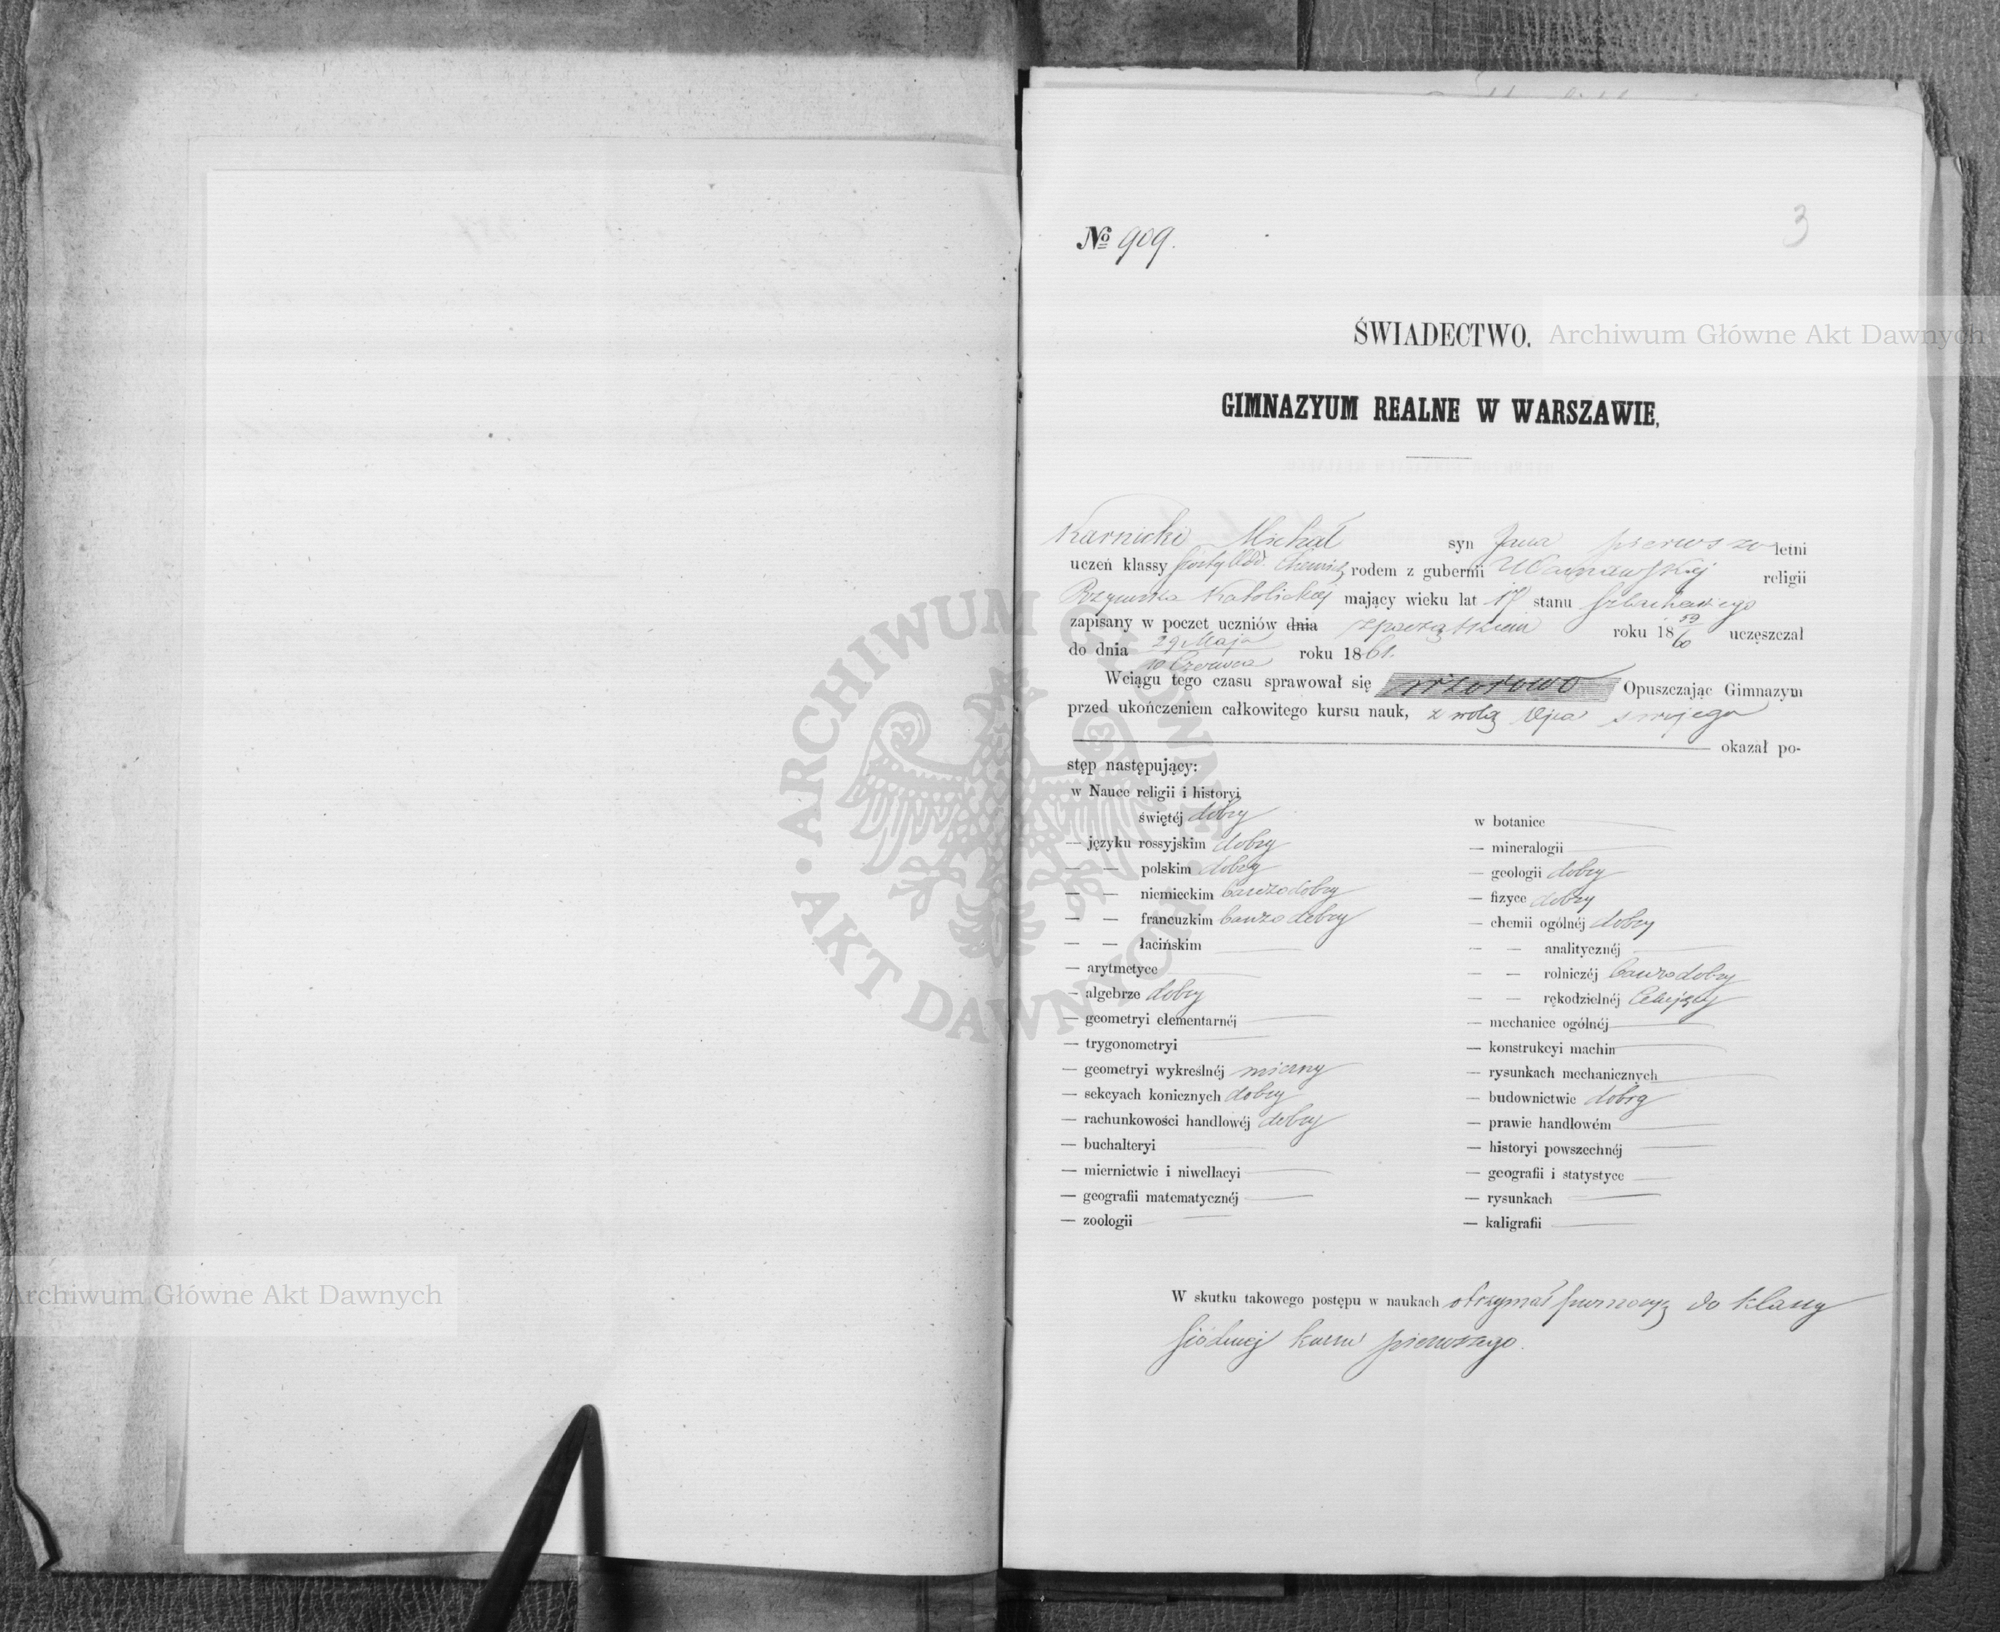 3
№ 909.
ŚWIADECTWO.
GIMNAZYUM REALNE W WARSZAWIE,
Karnicki Michał syn Jana pierwszo letni
uczeń klassy szóstej Od. Chemicz rodem z gubernii Warszawskiej religii
Rzymsko Katolickiej mający wieku lat 17 stanu szlacheckiego
zapisany w poczet uczniów dnia z początkiem roku 18 59/60 uczęszczał
do dnia 29 Maja / 10 Czerwca roku 1861.
Wciągu tego czasu sprawował się wzorowo Opuszczając Gimnazym
przed ukończeniem całkowitego kursu nauk, z wolą Ojca swojego
okazał po-
stęp następujący:
w Nauce religii i historyi
świętéj dobry
— języku rossyjskim dobry
— — polskim dobry
— — niemieckim bardzo dobry
— — francuzkim bardzo dobry
— — łacińskim —
— arytmetyce —
— algebrze dobry
— geometryi elementarnéj —
— trygonometryi —
— geometryi wykreślnéj mierny
— sekcyach konicznych dobry
— rachunkowości handlowéj dobry
— buchalteryi —
— miernictwie i niwellacyi —
— geografii matematycznéj —
— zoologii —
w botanice —
— mineralogii —
— geologii dobry
— fizyce dobry
— chemii ogólnéj dobry
— — analitycznéj —
— — rolniczéj bardzo dobry
— — rękodzielnéj celujący
— mechanice ogólnéj —
— konstrukcyi machin —
— rysunkach mechanicznych —
— budownictwie dobry
— prawie handlowém —
— historyi powszechnéj —
— geografii i statystyce —
— rysunkach —
— kaligrafii —
W skutku takowego postępu w naukach otrzymał promocyę do klassy
siódmej kursu pierwszego.
Archiwum Główne Akt Dawnych
Archiwum Główne Akt Dawnych
ARCHIWUM GŁÓWNE · AKT DAWNYCH ·